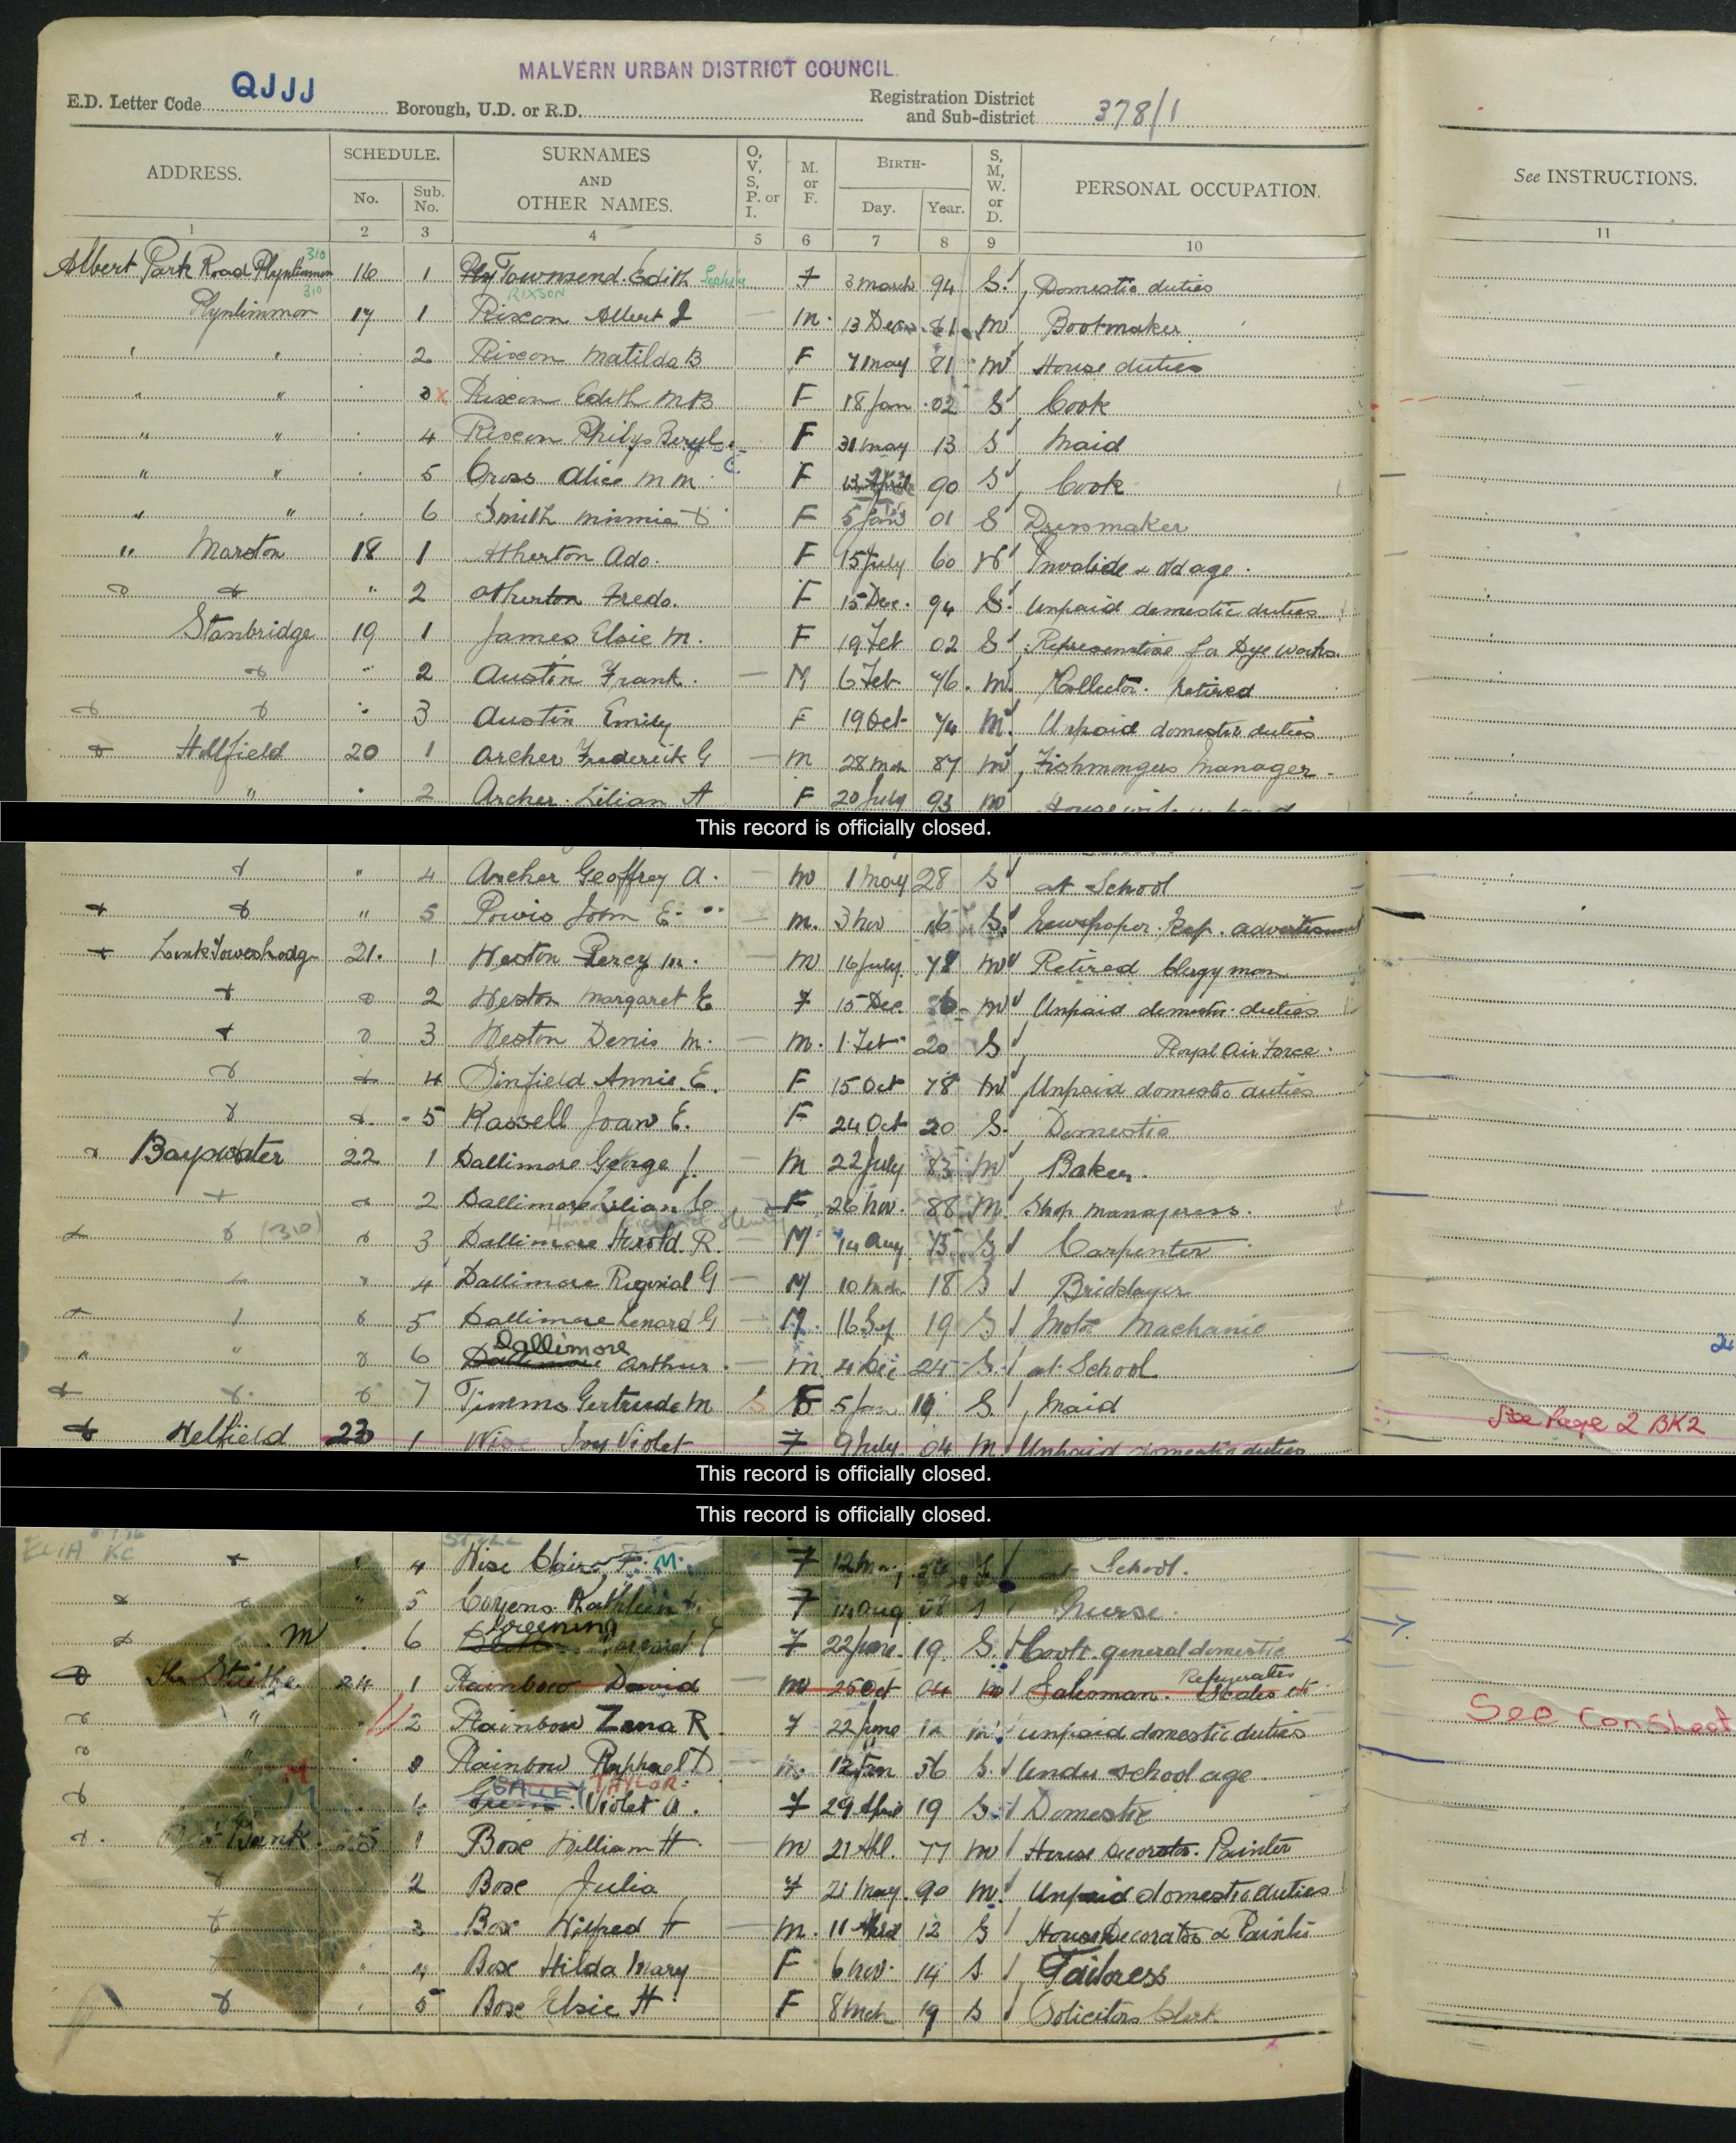 MALVERN URBAN DISTRICT COUNCIL.
E.D. Letter Code QJJJ Borough, U.D. or R.D. Registration District and Sub-district 378/1
ADDRESS. SCHEDULE. No. Sub. No. SURNAMES AND OTHER NAMES. O, V, S, P. or I. M. or F. BIRTH- Day. Year. S, M, W. or D. PERSONAL OCCUPATION. See INSTRUCTIONS.
1 2 3 4 5 6 7 8 9 10 11
310
Albert Park Road Plynlimmon 16 1 Townsend Edith F 3 march 94 S. Domestic duties
310 RIXSON
Plynlimmon 17 1 Rixon Albert J — m. 13 Dec 81 m Bootmaker
" " 2 Rixon Matilda B F 7 may 81 m House duties
" " 3 x Rixon Edith M B F 18 Jan 02 S Cook
" " 4 Rixon Philys Beryl F 31 may 13 S Maid
" " 5 Cross Alice M M F 13 April 90 S Cook
" " 6 Smith Minnie F 5 Jan 01 S Dressmaker
" Marston 18 1 Atherton Ada. F 15 July 60 W Invalide & old age.
" 2 Atherton Freda. F 15 Dec. 94 S. Unpaid domestic duties
Stanbridge 19 1 James Elsie M. F 19 Feb 02 S Representive for Dye Works.
" 2 Austin Frank. — M 6 Feb 76. m. Collector. retired
" 3 Austin Emily F 19 Oct 74 M. Unpaid domestic duties
Hellfield 20 1 Archer Frederick G — m 28 mch 87 m Fishmongers Manager.
" 2 Archer Lilian A F 20 July 93 m
This record is officially closed.
" 4 Archer Geoffrey A. — m 1 May 28 S at School
" 5 Powis John E. — m. 3 nov 16 S. Newspaper. Rep. advertisment
21. 1 Weston Percy m. — m 16 July 78 m Retired Clergyman
2 Weston Margaret E F 15 Dec. m Unpaid domestic duties
3 Weston Denis M. — m. 1 Feb 20 S Royal Air Force.
4 Annie E. F 15 Oct 78 m Unpaid domestic duties
5 Kassell Joan E. F 24 Oct 20 S. Domestic
Bayswater 22 1 Dallimore George J. — m 22 July 83 m Baker.
2 Dallimore Lilian C F 26 nov. 88 m. Shop manageress.
Harold Henry
(310) 3 Dallimore Harold R. — M 14 Aug 15 S Carpenter
4 Dallimore Reginal G — M 10 mch 18 S Bricklayer
5 Dallimore Lenard G — M. 16 Sep 19 S Motor Machanic
Dallimore
" " 6 Arthur. — m. 4 Dec 24 S. at School
7 Timms Gertrude M S F 5 Jan 19 S. Maid
See Page 2 BK2
Hellfield 23 1 Wise Joy Violet F 9 July 04 m. Unpaid domestic duties
This record is officially closed.
This record is officially closed.
4 Wise F. M. F 12 S at School.
5 Kathleen F 14 Aug S Nurse.
Greening
M 6 F 22 June 19 S. Cook general domestic
Refrigerates
The 24 1 Rainbow David — m 25 Oct 04 m Salesman. Scales etc
See Con Sheet
" 2 Rainbow Zena R. F 22 June 12 m. unpaid domestic duties
" 3 Rainbow Raphael D — m. 12 Jan 36 S. Under school age
M TAYLOR
4 Violet A. F 29 April 19 S. Domestic
Bank 25 1 Box William H — m 21 77 m House Decorator. Painter
2 Box Julia F 21 may 90 m. Unpaid domestic duties
3 Box Wilfred H — m. 11 12 S House Decorator & Painter
4 Box Hilda Mary F 6 nov. 14 S Tailoress
5 Box Elsie H F 8 mch 19 S Solicitors Clerk